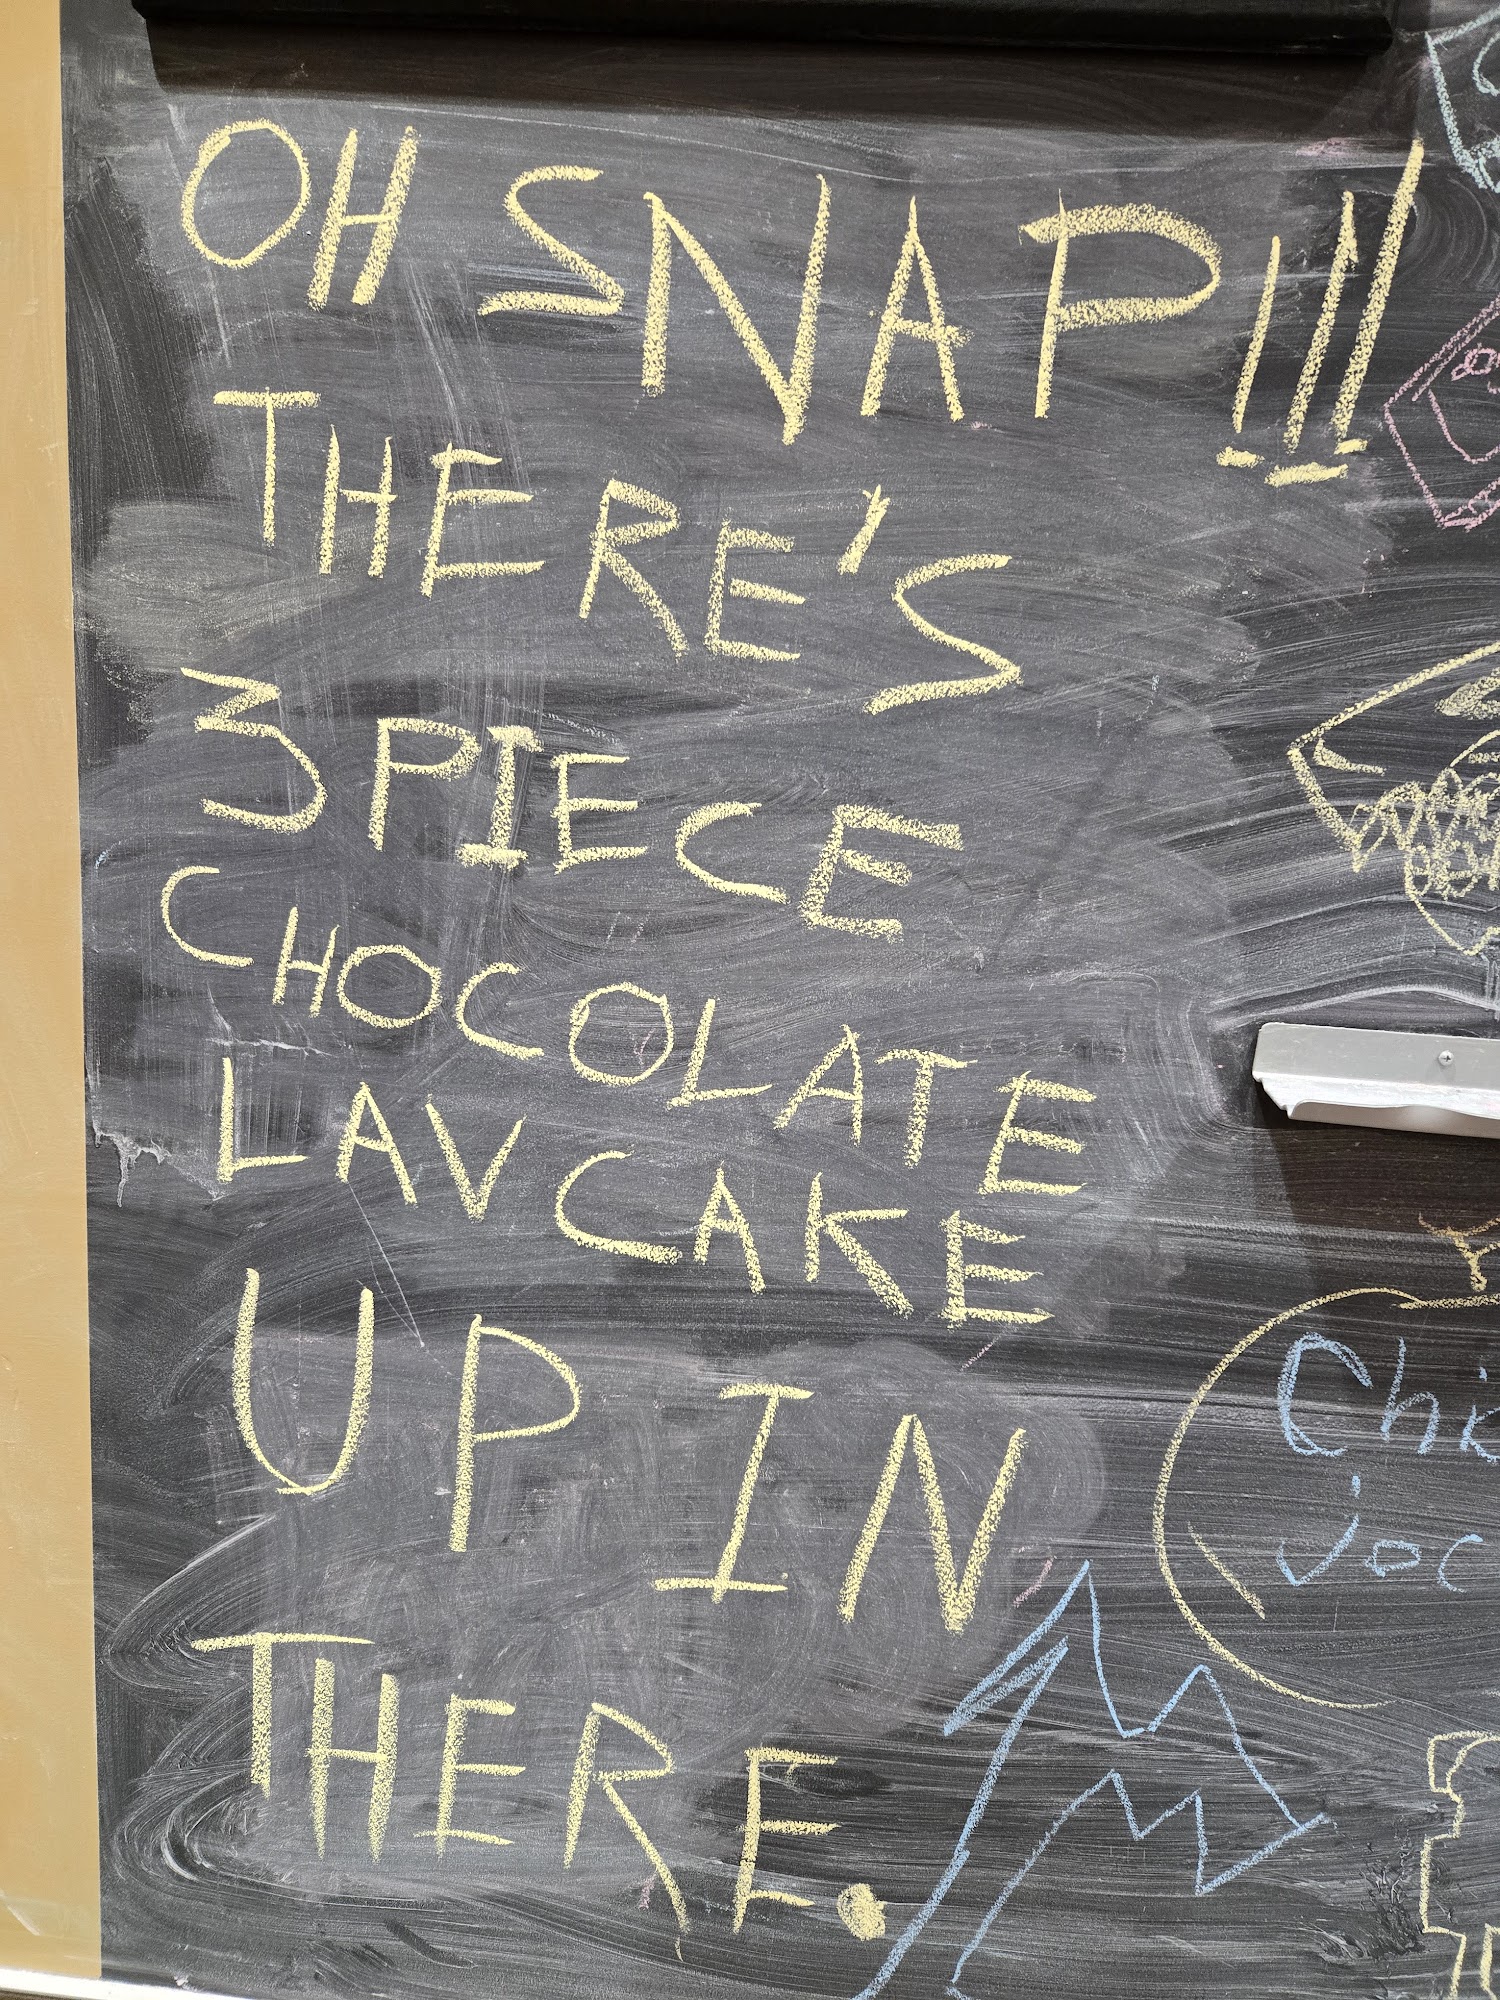 OH SNAP!!!
THERE'S
3 PIECE
CHOCOLATE
LAV CAKE
UP IN
THERE.